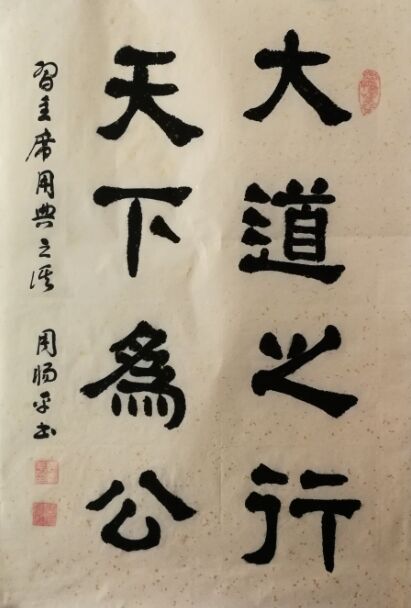 大道之行
天下為公
習主席用典之後 周楊平书